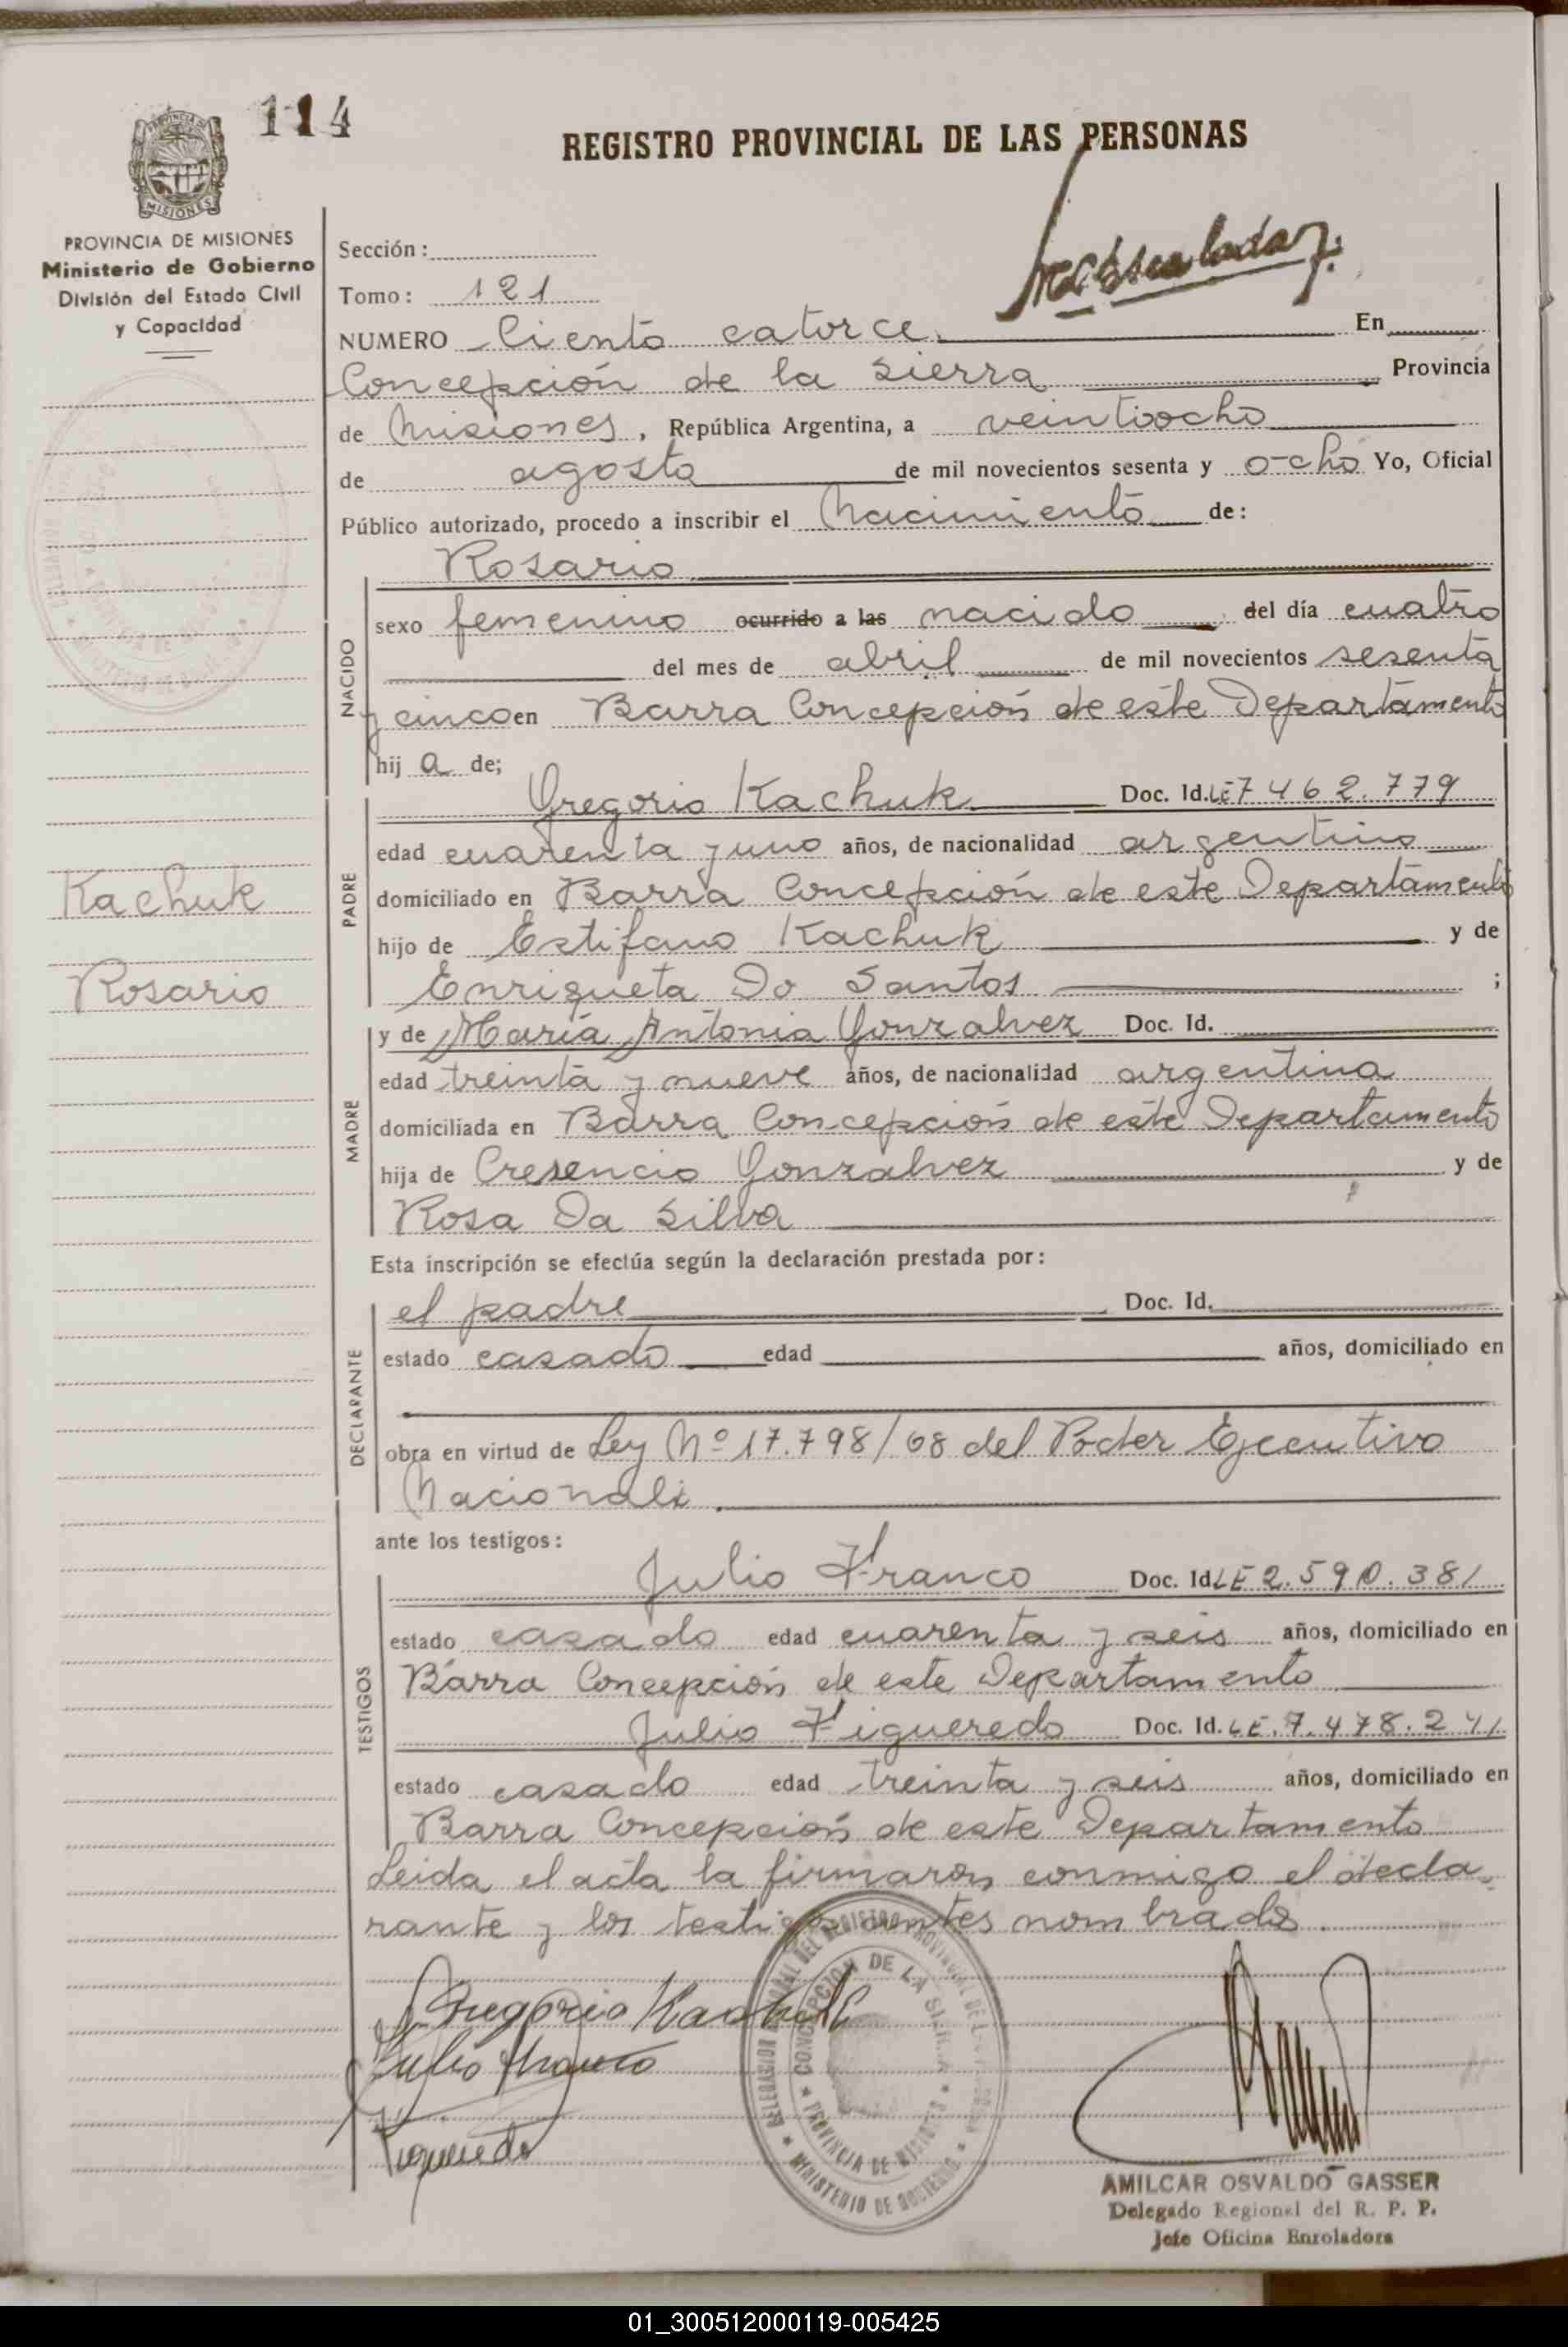 114
REGISTRO PROVINCIAL DE LAS PERSONAS
PROVINCIA DE MISIONES
Ministerio de Gobierno
División del Estado Civil
y Capacidad
Sección:
Tomo: 121
NUMERO Ciento catorce. En
Concepción de la Sierra Provincia
de Misiones, República Argentina, a veintiocho
de agosto de mil novecientos sesenta y ocho Yo, Oficial
Público autorizado, procedo a inscribir el Nacimiento de:
Rosario
NACIDO
sexo femenino ocurrido a las nacido del día cuatro
del mes de abril de mil novecientos sesenta
y cinco en Barra Concepción de este Departamento
hij a de;
PADRE
Gregorio Kachuk Doc. Id. LE 7462.779
edad cuarenta y uno años, de nacionalidad argentino
domiciliado en Barra Concepción de este Departamento
hijo de Estifano Kachuk y de
Enriqueta Do Santos ;
Kachuk
Rosario
MADRE
y de María Antonia Gonzalvez Doc. Id.
edad treinta y nueve años, de nacionalidad argentina
domiciliada en Barra Concepción de este Departamento
hija de Cresencio Gonzalvez y de
Rosa Da Silva
Esta inscripción se efectúa según la declaración prestada por:
DECLARANTE
el padre Doc. Id.
estado casado edad años, domiciliado en
obra en virtud de Ley Nº 17.798/68 del Poder Ejecutivo
ante los testigos:
TESTIGOS
Julio Franco Doc. Id. LE 2.590.381
estado casado edad cuarenta y seis años, domiciliado en
Barra Concepción de este Departamento
Julio Figueredo Doc. Id. LE.7.478.241
estado casado edad treinta y seis años, domiciliado en
Barra Concepción de este Departamento
Leida el acta la firmaron conmigo el decla-
rante y los testigos antes nombrados.
Gregorio Kachuk
Julio Franco
Figueredo
CONCEPCION DE LA SIERRA
PROVINCIA DE MISIONES
MINISTERIO DE GOBIERNO
AMILCAR OSVALDO GASSER
Delegado Regional del R. P. P.
Jefe Oficina Enroladora
01_300512000119-005425